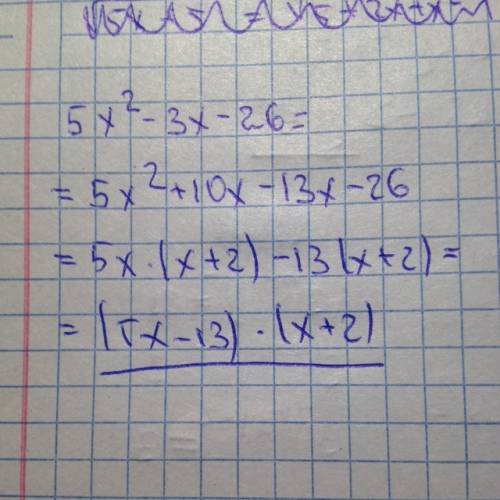 5x² - 3x - 26 =
= 5x² + 10x - 13x - 26
= 5x · (x + 2) - 13(x + 2) =
= (5x - 13) · (x + 2)